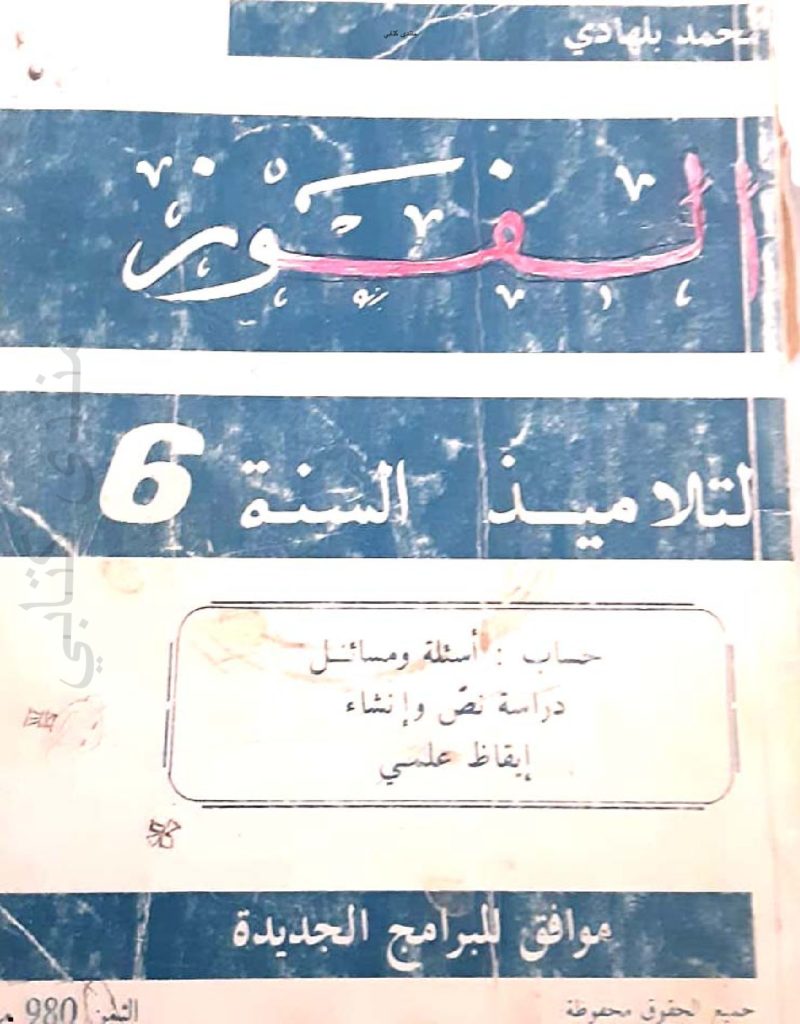 محمد بلهادي
منتدى كتابي
الفوز
لتلاميذ السنة 6
حساب : أسئلة ومسائل
دراسة نص وإنشاء
إيقاظ علمي
موافق للبرامج الجديدة
جميع الحقوق محفوظة
الثمن 980
منتدى كتابي